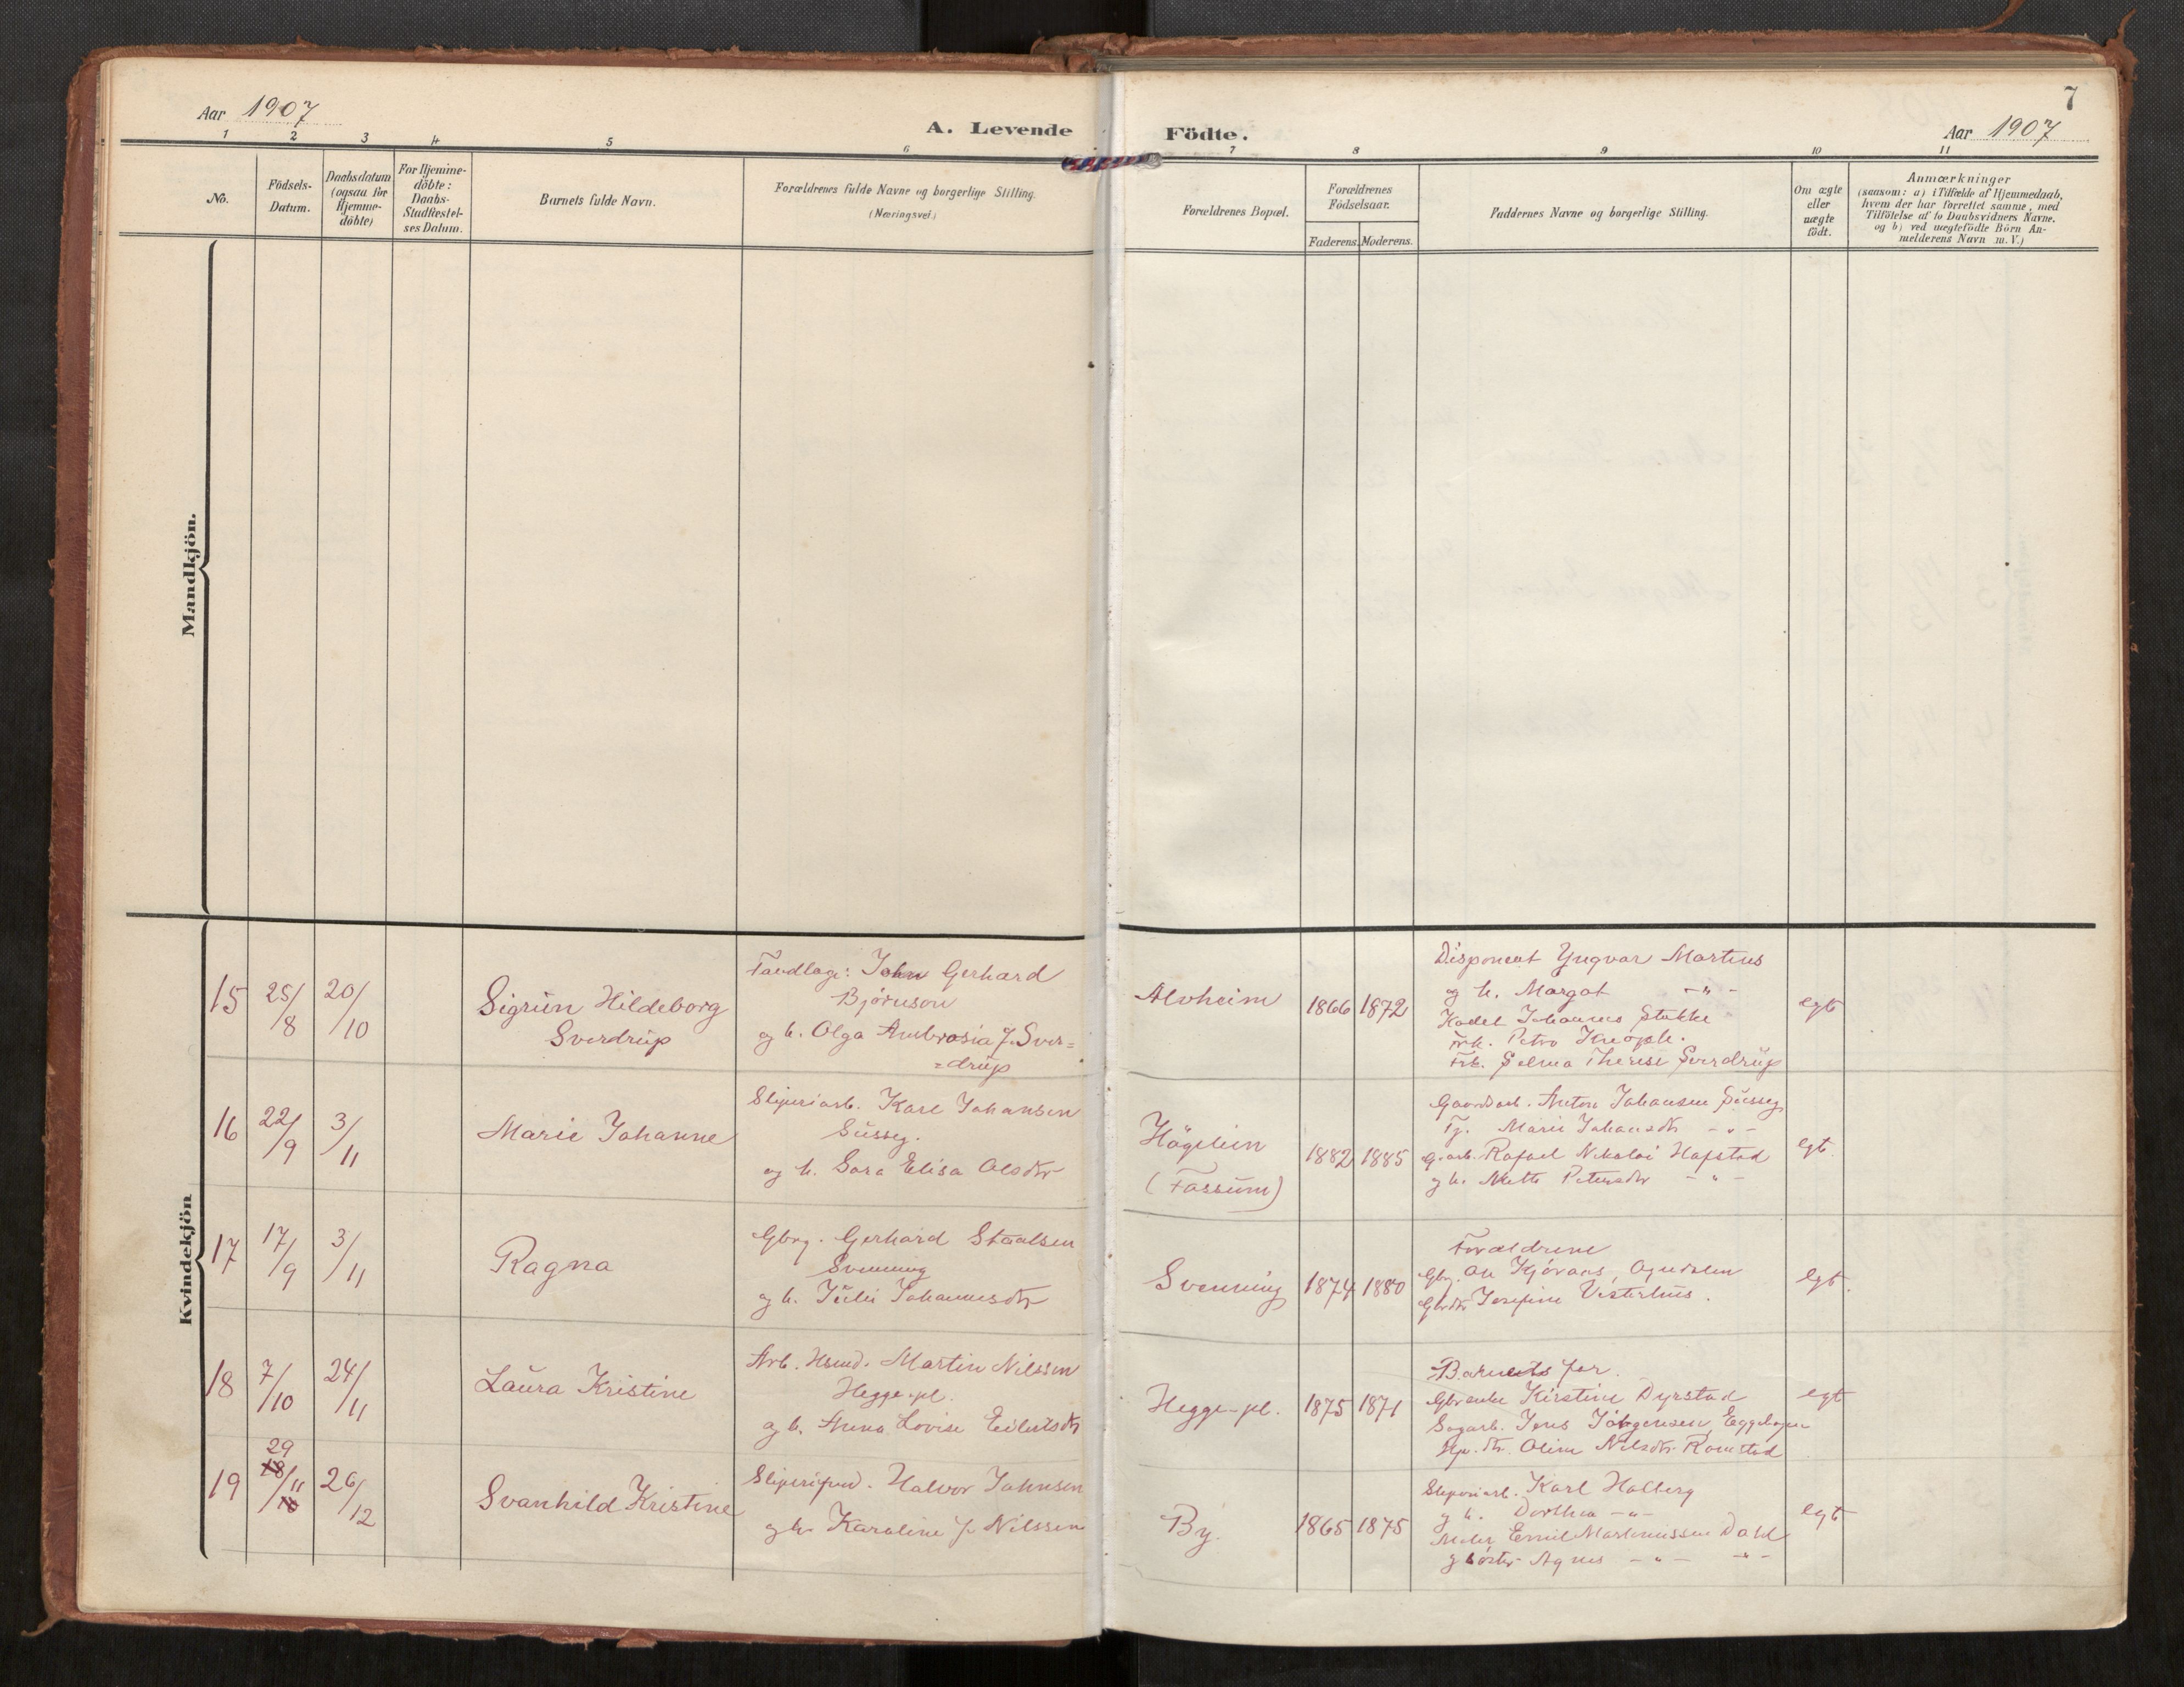 7
Aar 1907
A. Levende Födte.
Aar 1907
1 2 3 4 5 6 7 8 9 10 11
No.
Födsels-
Datum.
Daabsdatum
(ogsaa for
Hjemme-
döbte)
For Hjemme-
döbte:
Daabs-
Stadfæstel-
ses Datum.
Barnets fulde Navn.
Forældrenes fulde Navne og borgerlige Stilling.
(Næringsvei.)
Forældrenes Bopæl.
Forældrenes
Födselsaar.
Faderens. Moderens.
Faddernes Navne og borgerlige Stilling.
Om ægte
eller
uægte
födt.
Anmærkninger
(saasom: a) i Tilfælde af Hjemmedaab,
hvem der har forrettet samme, med
Tilföielse af to Daabsvidners Navne.
og b) ved uægtefödte Börn An-
melderens Navn m. V.)
Mandkjön.
Kvindekjön
15
25/8
20/10
Sigrun Hildeborg
Sverdrup
John Gerhard
Bjørnson
og h. Olga Ambrosia f. Sver=
=drup
Alvheim
1866
1872
Disponent Yngvar Martens
og h. Margot -"-
Kadet Johannes Stakke
Frk. Petra
Frk. Selma Therese Sverdrup
egt
16
22/9
3/11
Marie Johanne
Sliperiarb. Karl Johansen
Süsseg.
og h. Sara Elisa Olsdtr
(Fossum)
1882
1885
Gaardsarb. Anton Johansen Süsseg
Tj. Marie Johansdtr -"-
G.arb. Rafael Nikolai Hafstad
og h. Mette Petersdtr -"-
egt.
17
17/9
3/11
Ragna
Gbrg. Gerhard Staalsen
Svenning
og h. Julie Johannesdtr
Svenning
1874
1880
Forældrene
Gbrg. Ole Kjøraas, Ogndalen
Gbrdtr Josefine Vesterhus.
egt.
18
7/10
24/11
Laura Kristine
Arb. Hsmd. Martin Nilssen
Hegge-pl.
og h. Anna Lovise Eilertsdtr
Hegge-pl.
1875
1871
Barnets far.
Gbrenke Kirstine Dyrstad
Sagarb. Jens Jörgensen, Eggehagen
Oline Nilsdtr. Romstad
egt
19
29
18/11
10
26/12
Svanhild Kristine
Halvor Johnsen
og h. Karoline f. Nilssen
By.
1865
1875
Sliperiarb. Karl Halberg
og h. Dorthea -"-
Emil Martinussen Dahl
og søster Agnes -"- -"-
egt